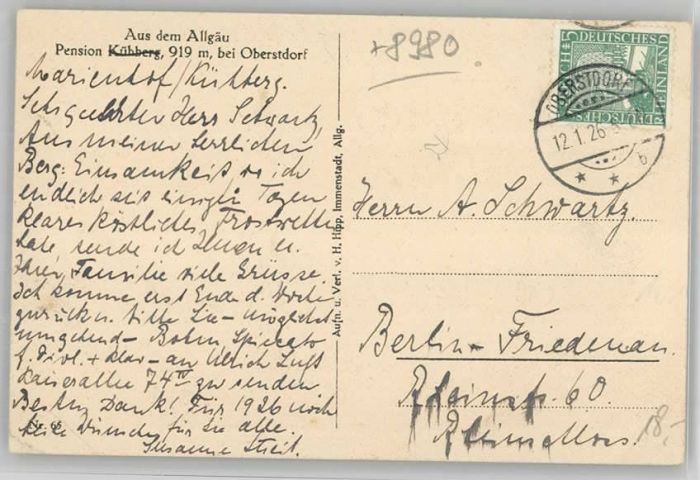 Aus dem Allgäu
Pension Kühberg, 919 m, bei Oberstdorf
Marienhof/Kühberg.
Sehr geehrter Herr Schwartz,
Aus meiner herrlichen
Berg-Einsamkeit, wo ich
endlich seit einigen Tagen
klares köstliches Frostwetter
habe, sende ich Ihnen u.
Ihrer Familie viele Grüsse.
Ich komme erst Ende d. Woche
zurück u. bitte Sie – möglichst
umgehend – Bohm, Spiccato
f. Viol. + Klav – an Ulrich Luft
Kaiserallee 74 IV zu senden
Besten Dank! Für 1926 noch
viele Wünsche für Sie alle.
Susanne Streit.
Nr. 65
Aufn. u. Verl. v. H. Hipp, Immenstadt, Allg.
+8980
5 DEUTSCHES REICH 5
RHEINLAND
OBERSTDORF
12.1.26
b
Herrn A. Schwartz.
Berlin-Friedenau.
Rheinstr. 60
18.-